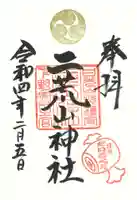 奉拝
二荒山神社
令和四年二月五日